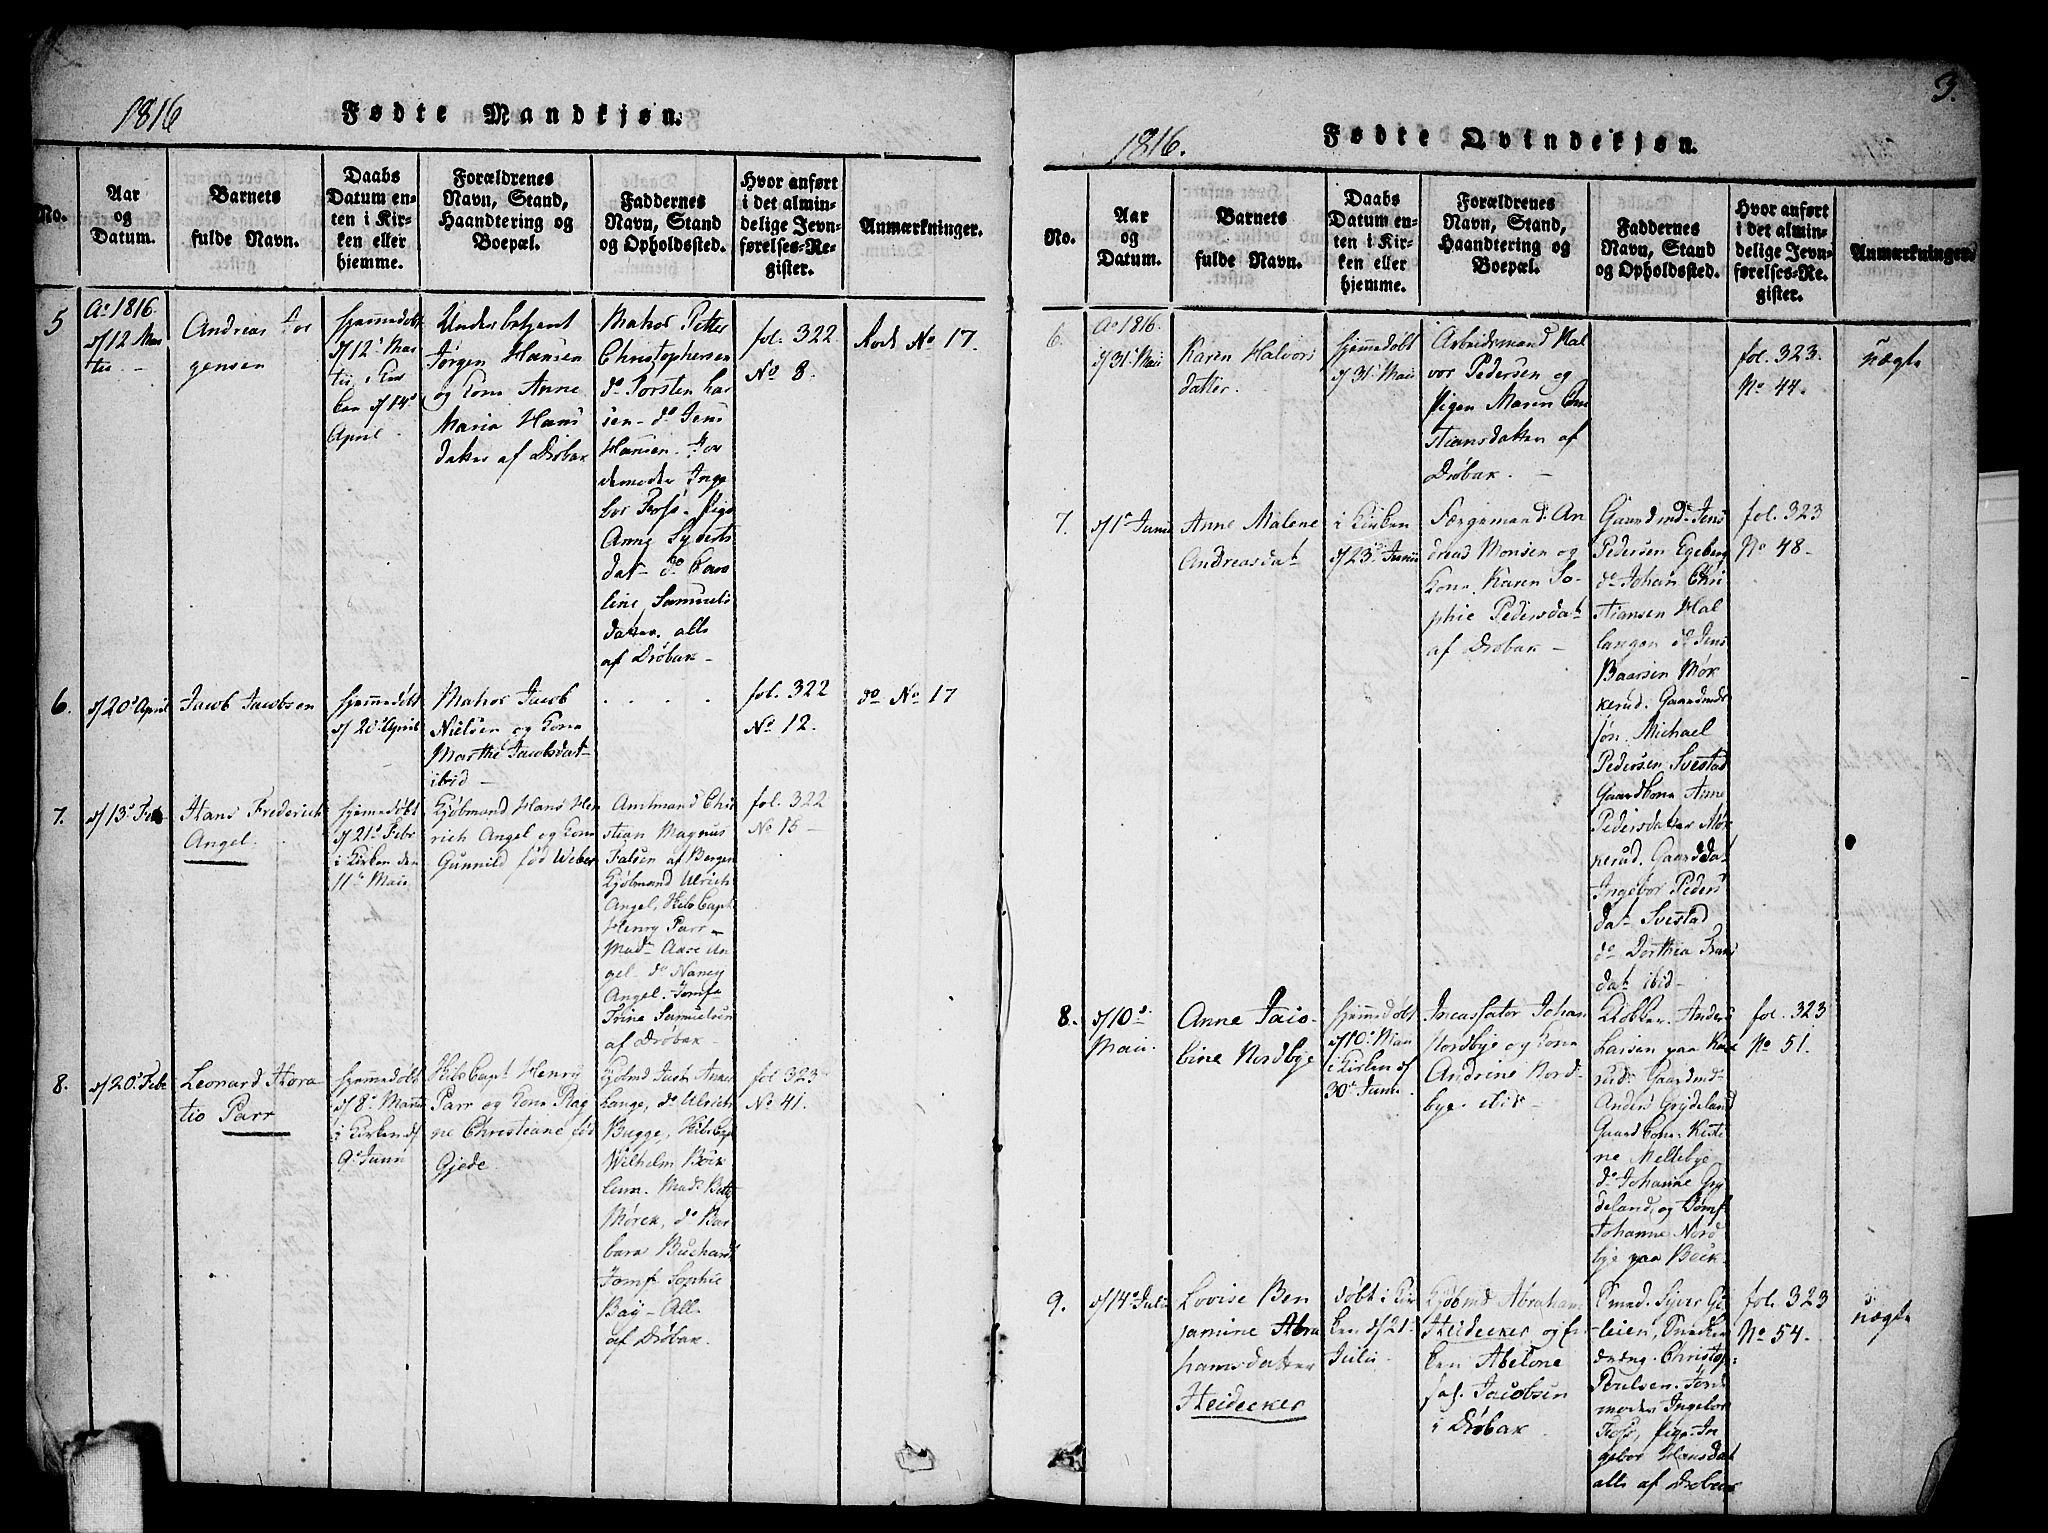 1816
Fødte Mandkjøn.
No.
Aar
og
Datum.
Barnets
fulde Navn.
Daabs
Datum en-
ten i Kir-
ken eller
hjemme.
Forældrenes
Navn, Stand,
Haandtering og
Boepæl.
Faddernes
Navn, Stand
og Opholdssted.
Hvor anført
i det almin-
delige Jevn-
førelses-Re-
gister.
Anmærkninger.
5
Ao 1816.
d/12 Mar
tii -
Andreas Jør
gensen
hjemmedøbt
d/12 Mar
tii, i Kir
ken d/14
April
Underbetjent
Jørgen Hansen
og Kone Anne
Maria Hans
datter af Drøbak
Matros Petter
Christophersen
do Torsten Lar
sen - do Jens
Hansen. Jor
demoder Inge
bor Foss - Pige
Anne Syverts
dat - do Karo
line Samuels
datter. alle
af Drøbak -
fol. 322
No 8.
Rode No 17.
6.
d/20 April
Jacob Jacobsen
hjemmedøbt
d/20 April
Matros Jacob
Nielsen og Kone
Marthe Jacobsdat-
ibid -
fol. 322
No 12.
do No 17
7.
d/13 Feb
Hans Frederich
Angel.
hjemmedøbt
d/21 Febr
i Kirken den
11 Maii
Kjøbmand Hans Hen
rich Angel og Kone
Gunnild fød Weber
Amtmand Chri
stian Magnus
Falsen af Bergen
Kjøbmand Ulrich
Angel, Skibs Capt
Henry Parr -
Mad - Aase An
gel - do Nancy
Angel. Jomf
Trine Samuelsen
af Drøbak -
fol. 322
No 15 -
8.
d/20 Feb
Leonard Hora
tio Parr
hjemmedøbt
d/8 Martii
i Kirken d/
9 Junii
Skibs Capt Henry
Parr og Kone Rag
ne Christiane fød
Gjøde.
Kjøbmd Just Anker
Lange, do Ulrich
Bugge, Skibs Capt
Wilhelm Böck
Mad Betty
Mörck, do Bar
bara Buchard
Jomf Sophie
Bay - Alle
af Drøbak.
fol 323
No 41.
3.
1816.
Fødte Qvindekjøn.
No.
Aar
og
Datum.
Barnets
fulde Navn.
Daabs
Datum en-
ten i Kir-
ken eller
hjemme.
Forældrenes
Navn, Stand,
Haandtering og
Boepæl.
Faddernes
Navn, Stand
og Opholdssted.
Hvor anført
i det almin-
delige Jevn-
førelses-Re-
gister.
Anmærkninger
6.
Ao 1816.
d/31 Maii
Karen Halvors
datter.
hjemmedøbt
d/31 Maii
Arbeidsmand Hal
vor Pedersen og
Pigen Maren Chri
stiansdatter af
Drøbak. -
fol. 323.
No 44.
uægte
7.
d/1 Junii
Anne Malene
Andreasdat
i Kirken
d/23 Junii
Færgemand An
dreas Monsen og
Kone Karen So-
phie Pedersdat
af Drøbak -
Gaardmd Jens
Pedersen Egeberg
do Johan Chri
stiansen Hal
langen do Jens
Baarsen Mör
kerud. Gaardmds
søn. Michael
Pedersen Svestad
Gaardkone Anne
Pedersdatter Mör
kerud. Gaardsdat
Ingebor Peders
dat Svestad
do Dorthea Frans
dat ibid -
fol. 323
No 48 -
8.
d/10
Maii.
Anne Jaco-
bine Nordbye
hjemmedøbt
d/10 Maii
i Kirken d/
30 Junii
Johan
Nordbye og Kone
Andrine Nord
bye. ibid -
Klokker Anders
Larsen paa
Gaardmd
Anders Grydeland
Gaardkone Kirsti
ne Mellebye
do Johanne Gry
deland, og Jomf
Johanne Nord
bye paa Beck -
fol. 323
No 51.
9.
d/14 Julii
Lovise Ben
jamine Abra
hamsdatter
Heidecker
døbt i Kir
ken d/21
Julii -
Kjøbmd Abraham
Heidecker og
Abelone
Jacobsen
i Drøbak
Smed Syver
leien, Snedker
dreng. Christop
Poulsen. Jorde
moder Ingebor
Foss, Pige In
gebor Hansdat
alle af Drøbak
fol. 323
No 54.
uægte